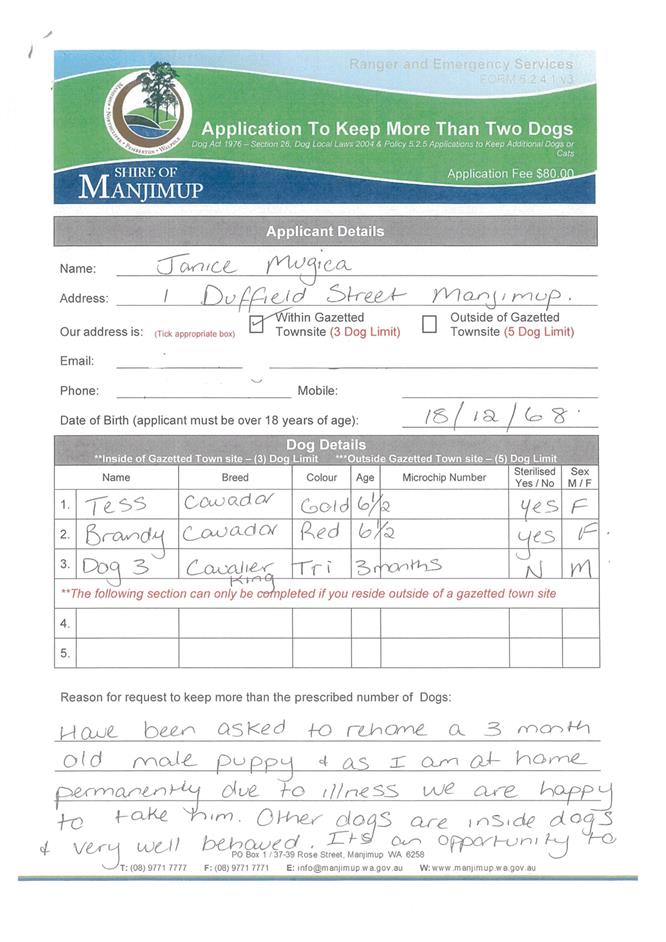 Ranger and Emergency Services
FORM 5.2.4.1 v3
MANJIMUP • NORTHCLIFFE • PEMBERTON • WALPOLE
Application To Keep More Than Two Dogs
Dog Act 1976 – Section 26, Dog Local Laws 2004 & Policy 5.2.5 Applications to Keep Additional Dogs or
Cats
SHIRE OF
MANJIMUP
Application Fee $80.00
Applicant Details
Name: Janice Mugica
Address: 1 Duffield Street Manjimup.
Our address is: (Tick appropriate box) ✓ Within Gazetted Townsite (3 Dog Limit) Outside of Gazetted Townsite (5 Dog Limit)
Email:
Phone: Mobile:
Date of Birth (applicant must be over 18 years of age): 18/12/68
Dog Details
**Inside of Gazetted Town site – (3) Dog Limit ***Outside Gazetted Town site – (5) Dog Limit
Name Breed Colour Age Microchip Number Sterilised Yes / No Sex M / F
1. Tess Cavador Gold 6 1/2 yes F
2. Brandy Cavador Red 6 1/2 yes F
3. Dog 3 Cavalier King Tri 3 months N M
**The following section can only be completed if you reside outside of a gazetted town site
4.
5.
Reason for request to keep more than the prescribed number of Dogs:
Have been asked to rehome a 3 month
old male puppy & as I am at home
permanently due to illness we are happy
to take him. Other dogs are inside dogs
& very well behaved. Its an opportunity to
PO Box 1 / 37-39 Rose Street, Manjimup WA 6258
T: (08) 9771 7777 F: (08) 9771 7771 E: info@manjimup.wa.gov.au W: www.manjimup.wa.gov.au